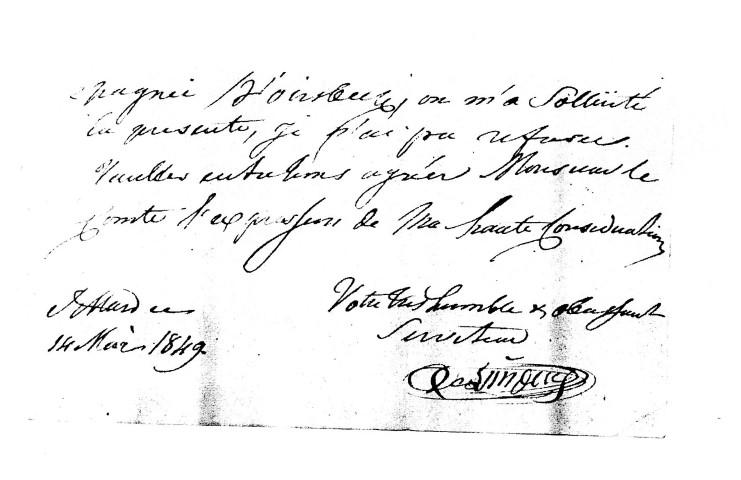 on m'a sollicité
la presente, je n'ai pu refuser.
Veuillez agréer Monsieur le
Comte l'expression de Ma haute Considération
14 Mai 1849.
Votre très humble & obeissant
Serviteur